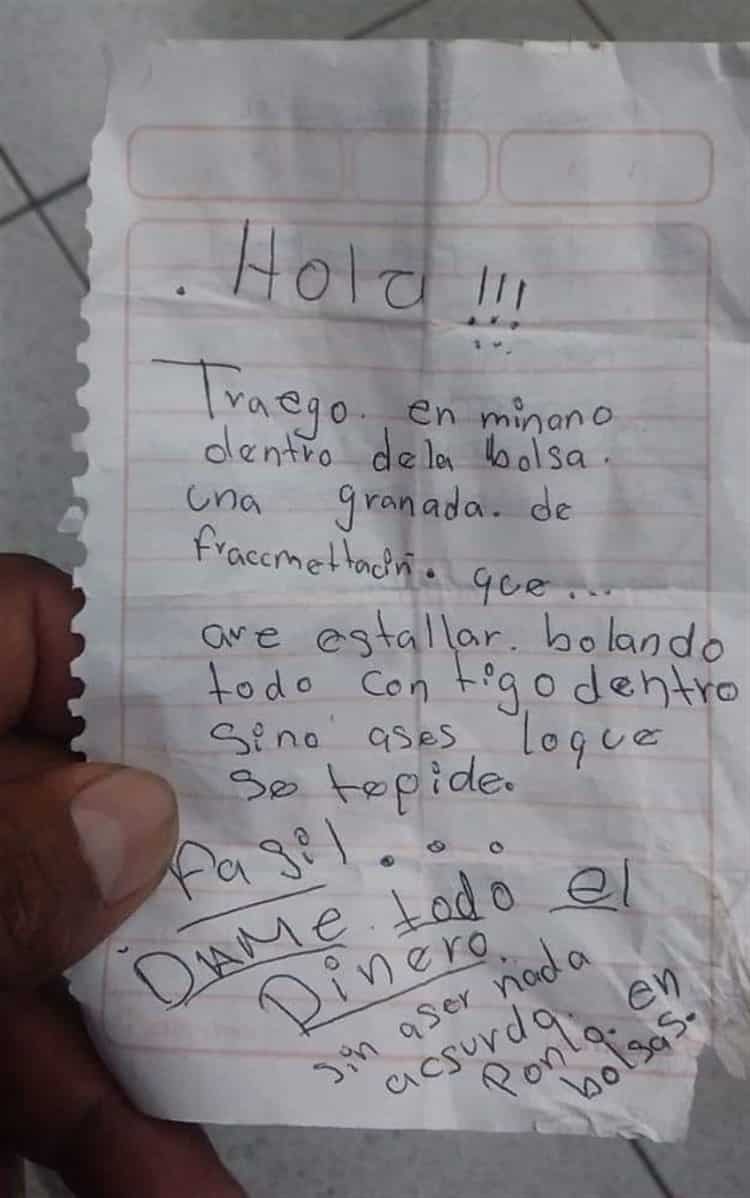 . Hola !!!
Traego. en minano
dentro dela bolsa.
una granada. de
fraccmettación. que...
are estallar. bolando
todo contigo dentro
sino ases loque
se tepide.
Fasil...
DAMe. todo el
Dinero.
sin aser nada
acsurda. en
Ponlo.
bolsas.